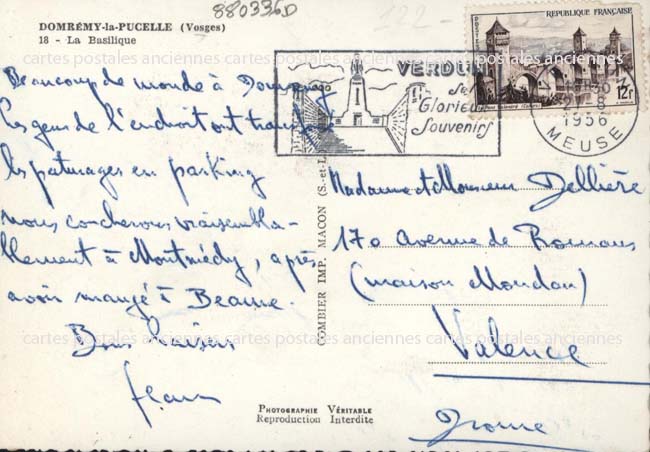 880336D
DOMRÉMY-la-PUCELLE (Vosges)
18 - La Basilique
Beaucoup de monde à Domremy
les gens de l'endroit ont transformé
les paturages en parking
nous coucherons vraisembla-
blement à Montmédy, après
avoir mangé à Beaune.
Bons baisers
Jean
COMBIER IMP. MACON (S.-et-L.
PHOTOGRAPHIE VÉRITABLE
Reproduction Interdite
VERDUN
Ses
Glorieux
Souvenirs
REPUBLIQUE FRANÇAISE
POSTES
12F
1956
MEUSE
Madame et Monsieur Dellière
170 Avenue de Romans
(maison Moudon)
Valence
Drome
cartes postales anciennes cartes postales anciennes cartes postales anciennes
cartes postales anciennes cartes postales anciennes cartes postales anciennes